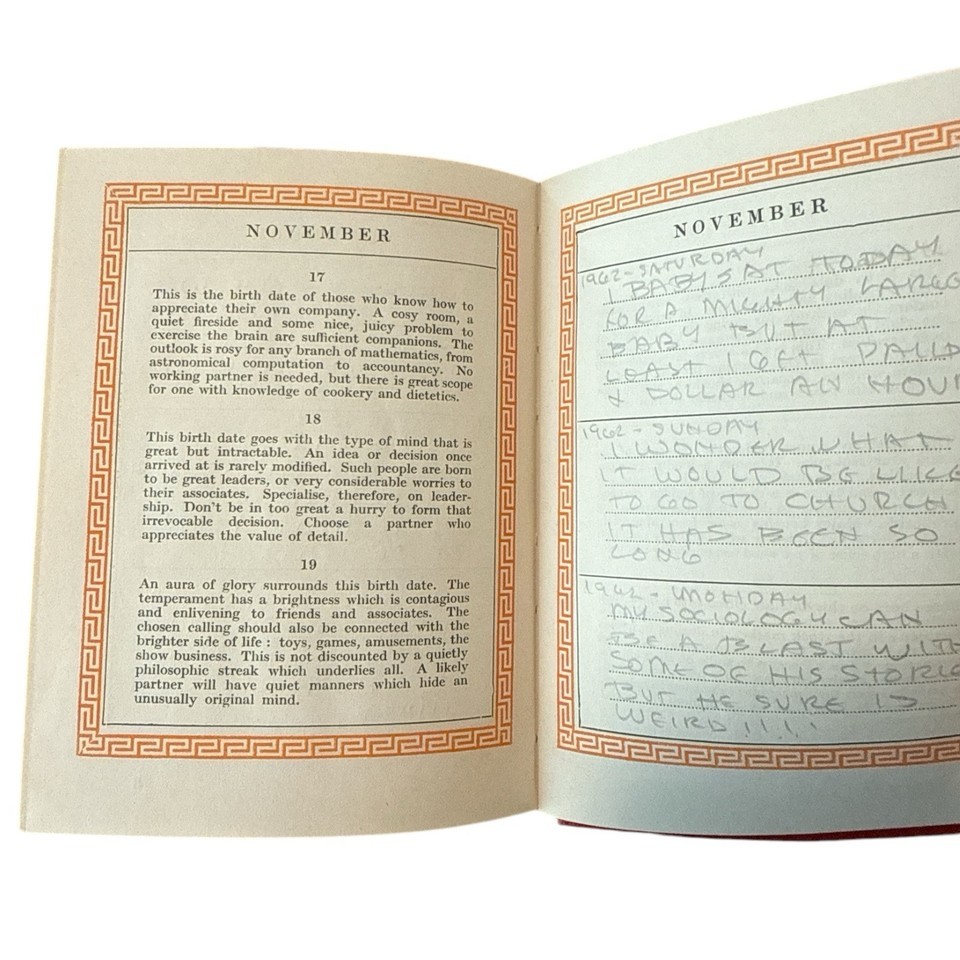 NOVEMBER
17
This is the birth date of those who know how to
appreciate their own company. A cosy room, a
quiet fireside and some nice, juicy problem to
exercise the brain are sufficient companions. The
outlook is rosy for any branch of mathematics, from
astronomical computation to accountancy. No
working partner is needed, but there is great scope
for one with knowledge of cookery and dietetics.
18
This birth date goes with the type of mind that is
great but intractable. An idea or decision once
arrived at is rarely modified. Such people are born
to be great leaders, or very considerable worries to
their associates. Specialise, therefore, on leader-
ship. Don't be in too great a hurry to form that
irrevocable decision. Choose a partner who
appreciates the value of detail.
19
An aura of glory surrounds this birth date. The
temperament has a brightness which is contagious
and enlivening to friends and associates. The
chosen calling should also be connected with the
brighter side of life : toys, games, amusements, the
show business. This is not discounted by a quietly
philosophic streak which underlies all. A likely
partner will have quiet manners which hide an
unusually original mind.
NOVEMBER
1962 - SATURDAY
I BABYSAT TODAY
FOR A MIGHTY LARGE
BABY BUT AT
LEAST I GET
A DOLLAR AN HOUR
1962 - SUNDAY
I WONDER WHAT
IT WOULD BE LIKE
TO GO TO CHURCH
IT HAS BEEN SO
LONG
1962 - MONDAY
MY SOCIOLOGY CAN
BE A BLAST WITH
SOME OF HIS STORIE
BUT HE SURE IS
WEIRD !!!!